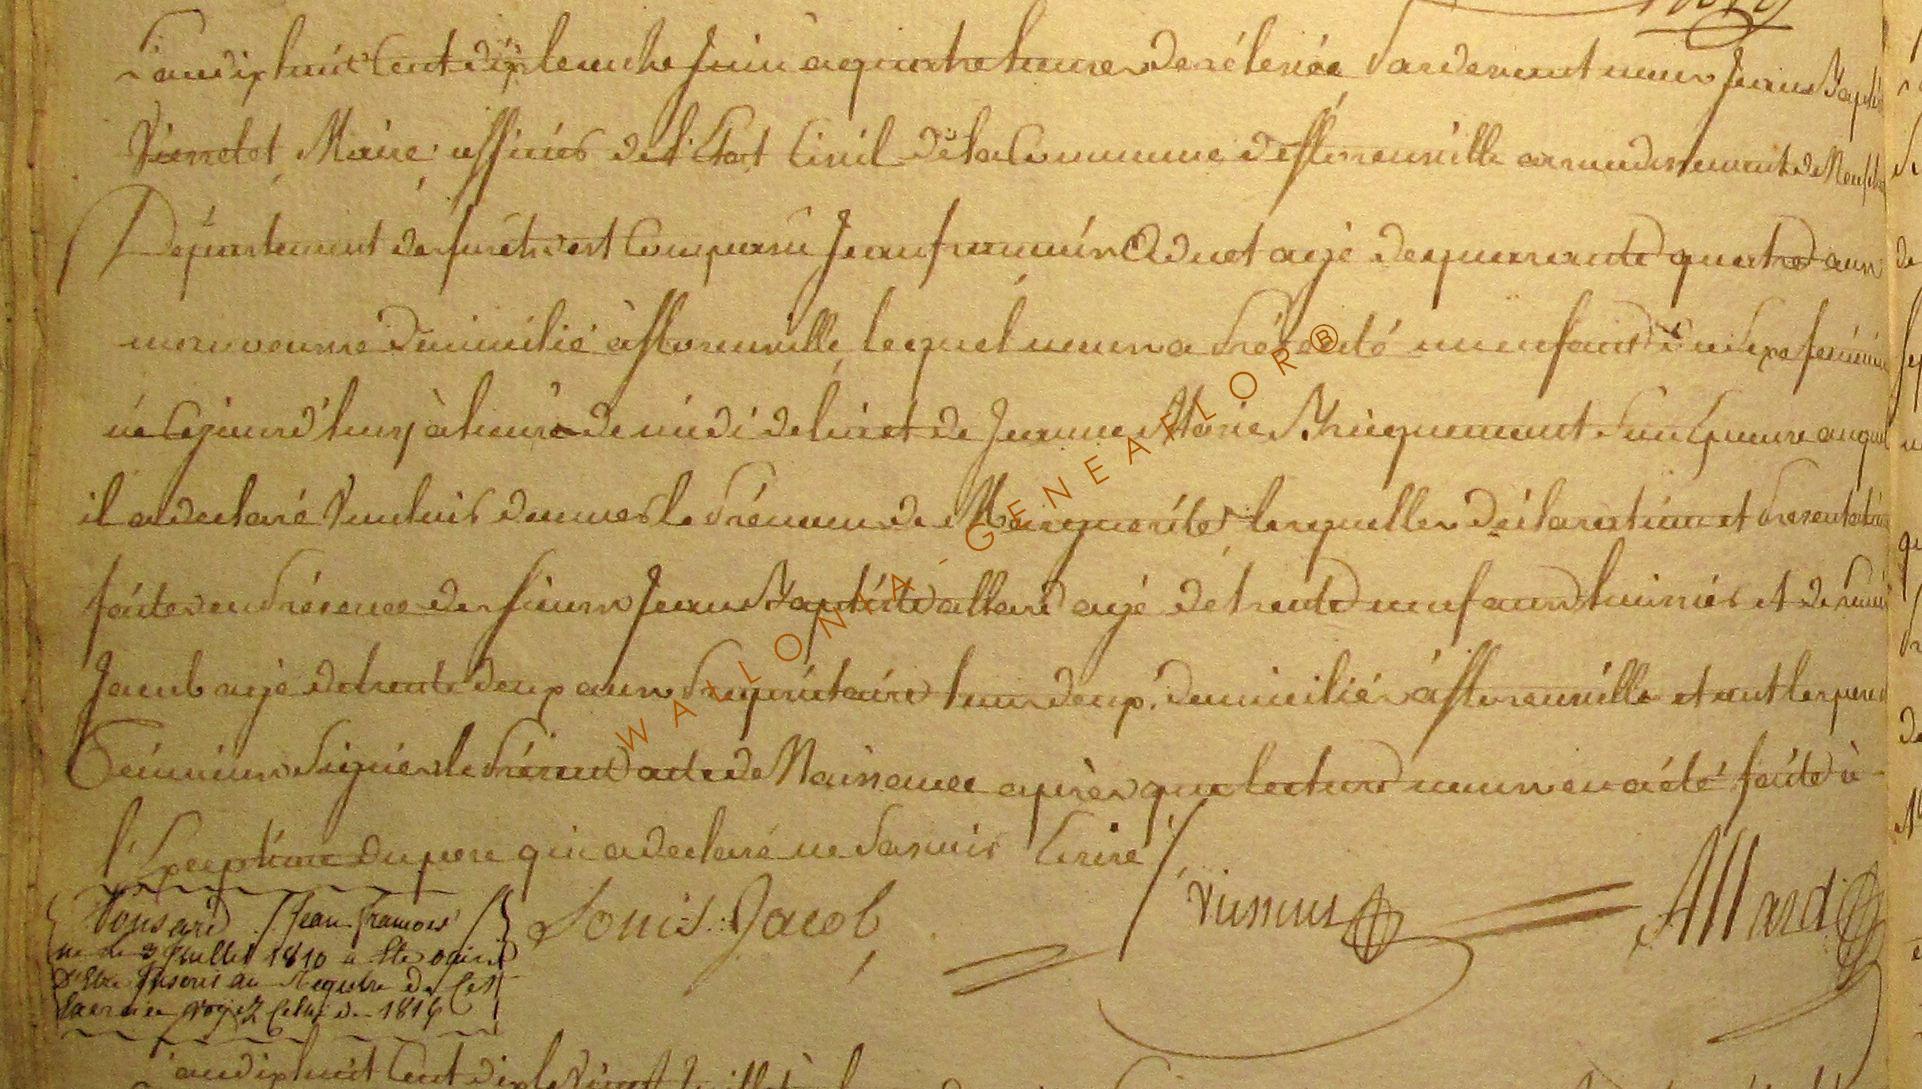 L'an dix huit Cent dix le huit Juin a quatre heures de relevée Pardevant nous Jean Bapte
Maire officier de l'Etat Civil de la Commune de Florenville arrondissement de Neufch
Département des forêts est Comparu Jean françois Adnet agé de quarante quatre ans
manoeuvre domicilié à florenville lequel nous a Présenté un enfant du Sexe féminin
né Cejourd'huy à heure de midi de lui et de Jeanne Marie Bricquemont Son Epouse auquel
il a declaré Vouloir donner le Prénom de Marguerite lesquelles déclaration et Presentation
faites en Présence des Sieurs Jean Baptiste allard agé de trente neuf ans huissier et de Louis
Jacob agé de trente deux ans Propriétaire tous deux domiciliés à florenville et ont les pere
Témoins Signés le Présent acte de Naissance après que lecture nous en a été faite à
l'Exception du pere qui a declaré ne Savoir Ecrire /
Louis Jacob Allard
Jean François
né le 3 Juillet 1810 a été omis
D'Etre Inscris au Registre de Cet
Exercice voyez Celui de 1816
L'an dix huit Cent dix le Vingt
WALLONIA - GENEAFLOR®